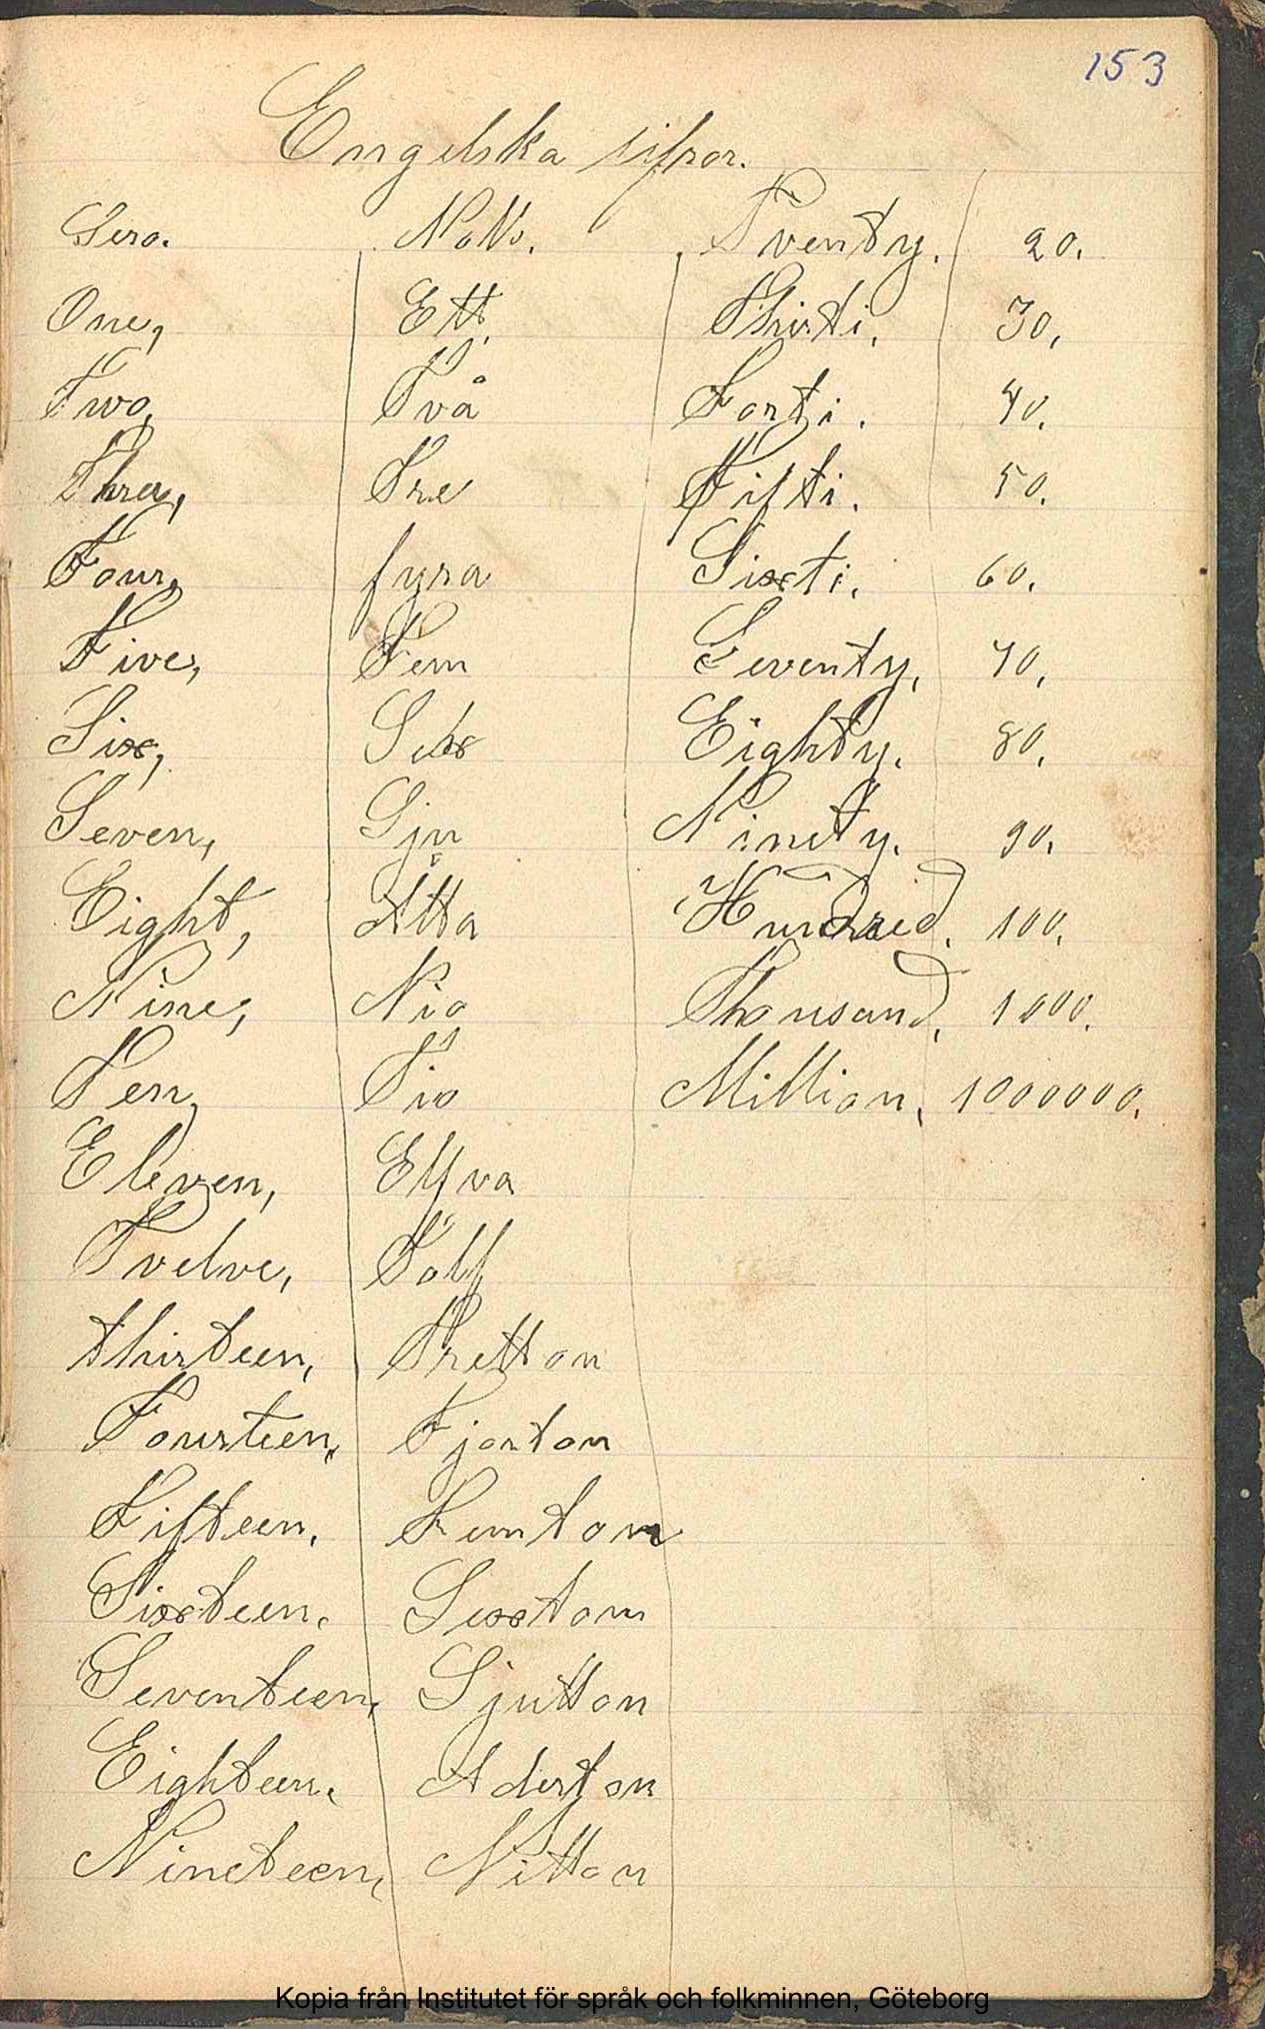 153
Engelska sifror.
Sero. Noll. Tventy. 20.
One, Ett. Thirti. 30.
Two, Två Forti. 40.
Three, Tre Fifti. 50.
Four, fyra Sixti. 60.
Five, Fem Seventy. 70.
Six, Sex Eighty. 80.
Seven, Sju Ninety. 90.
Eight, Åtta Hundried. 100.
Nine, Nio Thousand. 1000.
Ten, Tio Million. 1000000.
Eleven, Elfva
Tvelve, Tolf
thirteen, Tretton
Fourteen, Fjorton
Fifteen, Femton
Sixteen, Sexton
Seventeen, Sjutton
Eighteen, Aderton
Nineteen, Nitton
Kopia från Institutet för språk och folkminnen, Göteborg